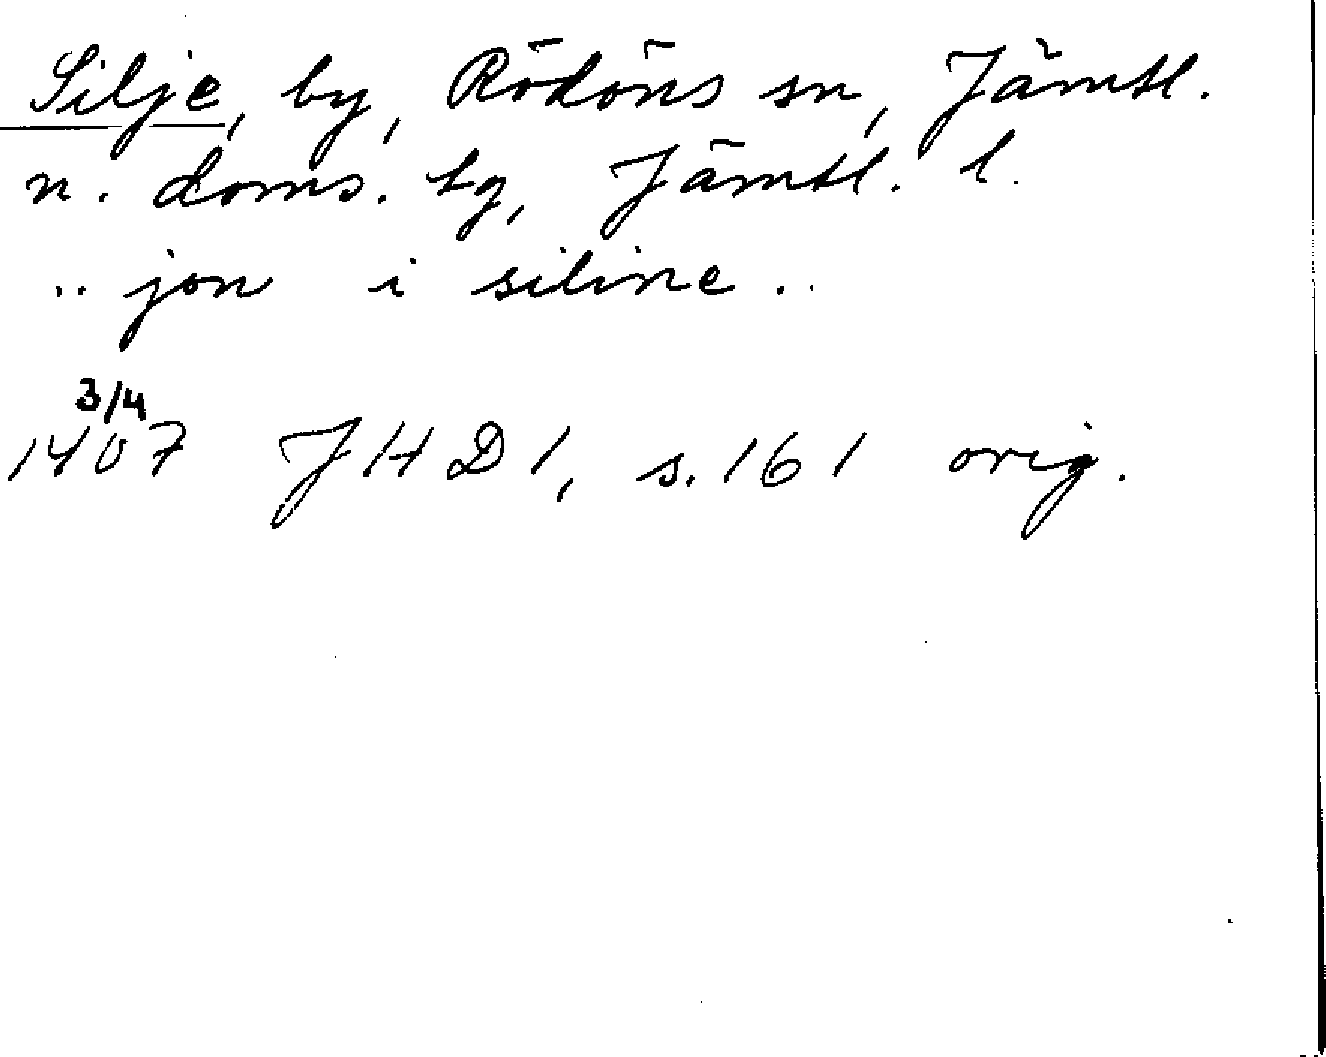 Silje, by, Rödöns sn, Jämtl.
n. doms. tg, Jämtl. l.
.. jon i siline ..
3/4
1407 JHD 1, s. 161 orig.